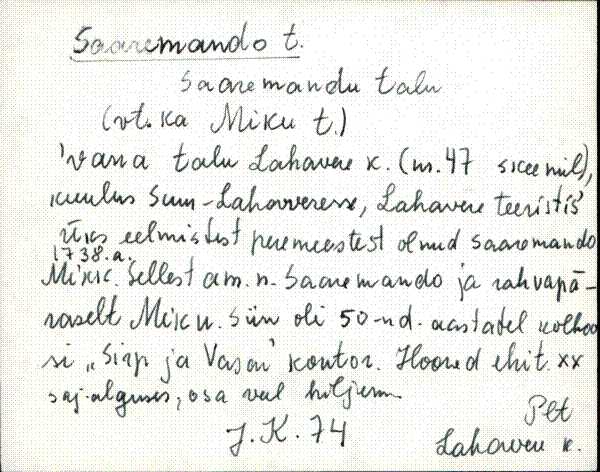 Saaremando t.
Saaremandu talu
(vt. ka Miku t.)
Vana talu Lahavere k. (nr. 47 skeemil),
kuulus Suur-Lahaveresse, Lahavere teeristis
Üks eelmistest peremeestest olnud Saaremando
1738.a.
Mikk. Sellest am. n. Saaremando ja rahvapä-
raselt Miku. Siin oli 50-nd. aastatel kolhoo
si "Sirp ja Vasar" kontor. Hooned ehit. XX
saj. alguses, osa veel hiljem.
J. K. 74
Plt
Lahavere k.